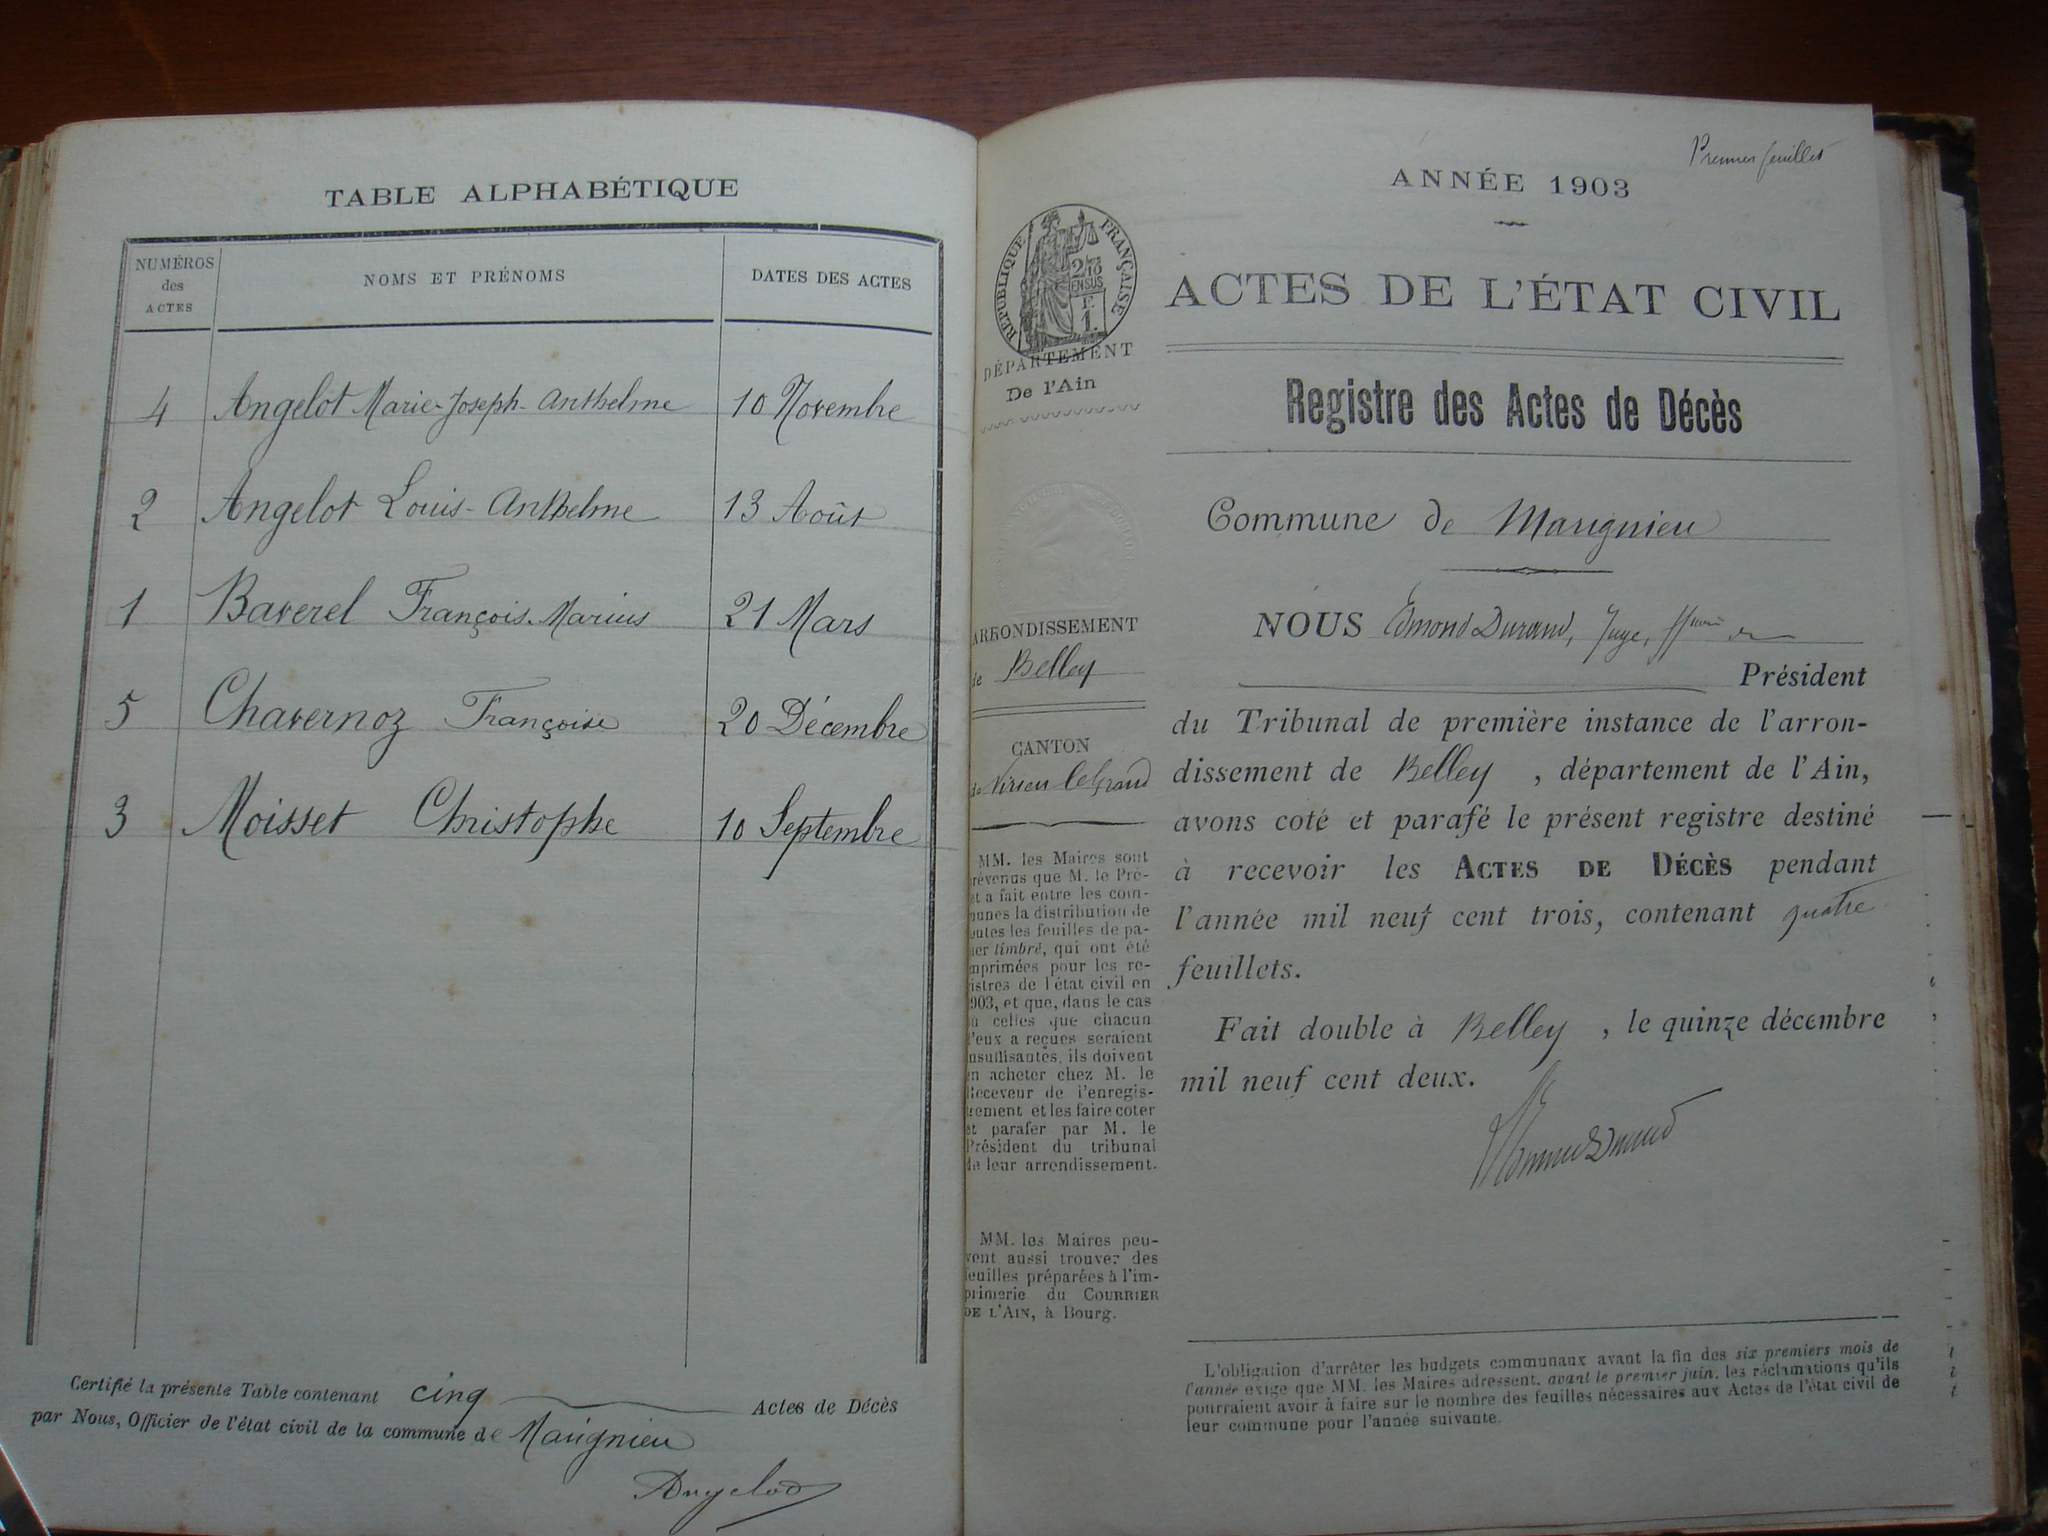 TABLE ALPHABÉTIQUE
NUMÉROS des ACTES
NOMS ET PRÉNOMS
DATES DES ACTES
4 Angelot Marie-Joseph-Anthelme 10 Novembre
2 Angelot Louis-Anthelme 13 Août
1 Baverel François-Marius 21 Mars
5 Chavernoz Françoise 20 Décembre
3 Moisset Christophe 10 Septembre
Certifié la présente Table contenant cinq Actes de Décès
par Nous, Officier de l'état civil de la commune de Marignieu
Angelot
Premier feuillet
ANNÉE 1903
RÉPUBLIQUE FRANÇAISE
2/10 EN SUS
F. 1.
DÉPARTEMENT
De l'Ain
ARRONDISSEMENT
de Belley
CANTON
de Virieu le Grand
MM. les Maires sont
prévenus que M. le Pré-
et a fait entre les com-
munes la distribution de
outes les feuilles de pa-
ier timbré, qui ont été
mprimées pour les re-
istres de l'état civil en
903, et que, dans le cas
ù celles que chacun
d'eux a reçues seraient
nsuffisantes, ils doivent
en acheter chez M. le
Receveur de l'enregis-
trement et les faire coter
et parafer par M. le
Président du tribunal
de leur arrondissement.
MM. les Maires peu-
vent aussi trouver des
feuilles préparées à l'im-
primerie du COURRIER
DE L'AIN, à Bourg.
ACTES DE L'ÉTAT CIVIL
Registre des Actes de Décès
Commune de Marignieu
NOUS Edmond Durand, Juge,
Président
du Tribunal de première instance de l'arron-
dissement de Belley, département de l'Ain,
avons coté et parafé le présent registre destiné
à recevoir les ACTES DE DÉCÈS pendant
l'année mil neuf cent trois, contenant quatre
feuillets.
Fait double à Belley, le quinze décembre
mil neuf cent deux.
L'obligation d'arrêter les budgets communaux avant la fin des six premiers mois de
l'année exige que MM. les Maires adressent, avant le premier juin, les réclamations qu'ils
pourraient avoir à faire sur le nombre des feuilles nécessaires aux Actes de l'état civil de
leur commune pour l'année suivante.